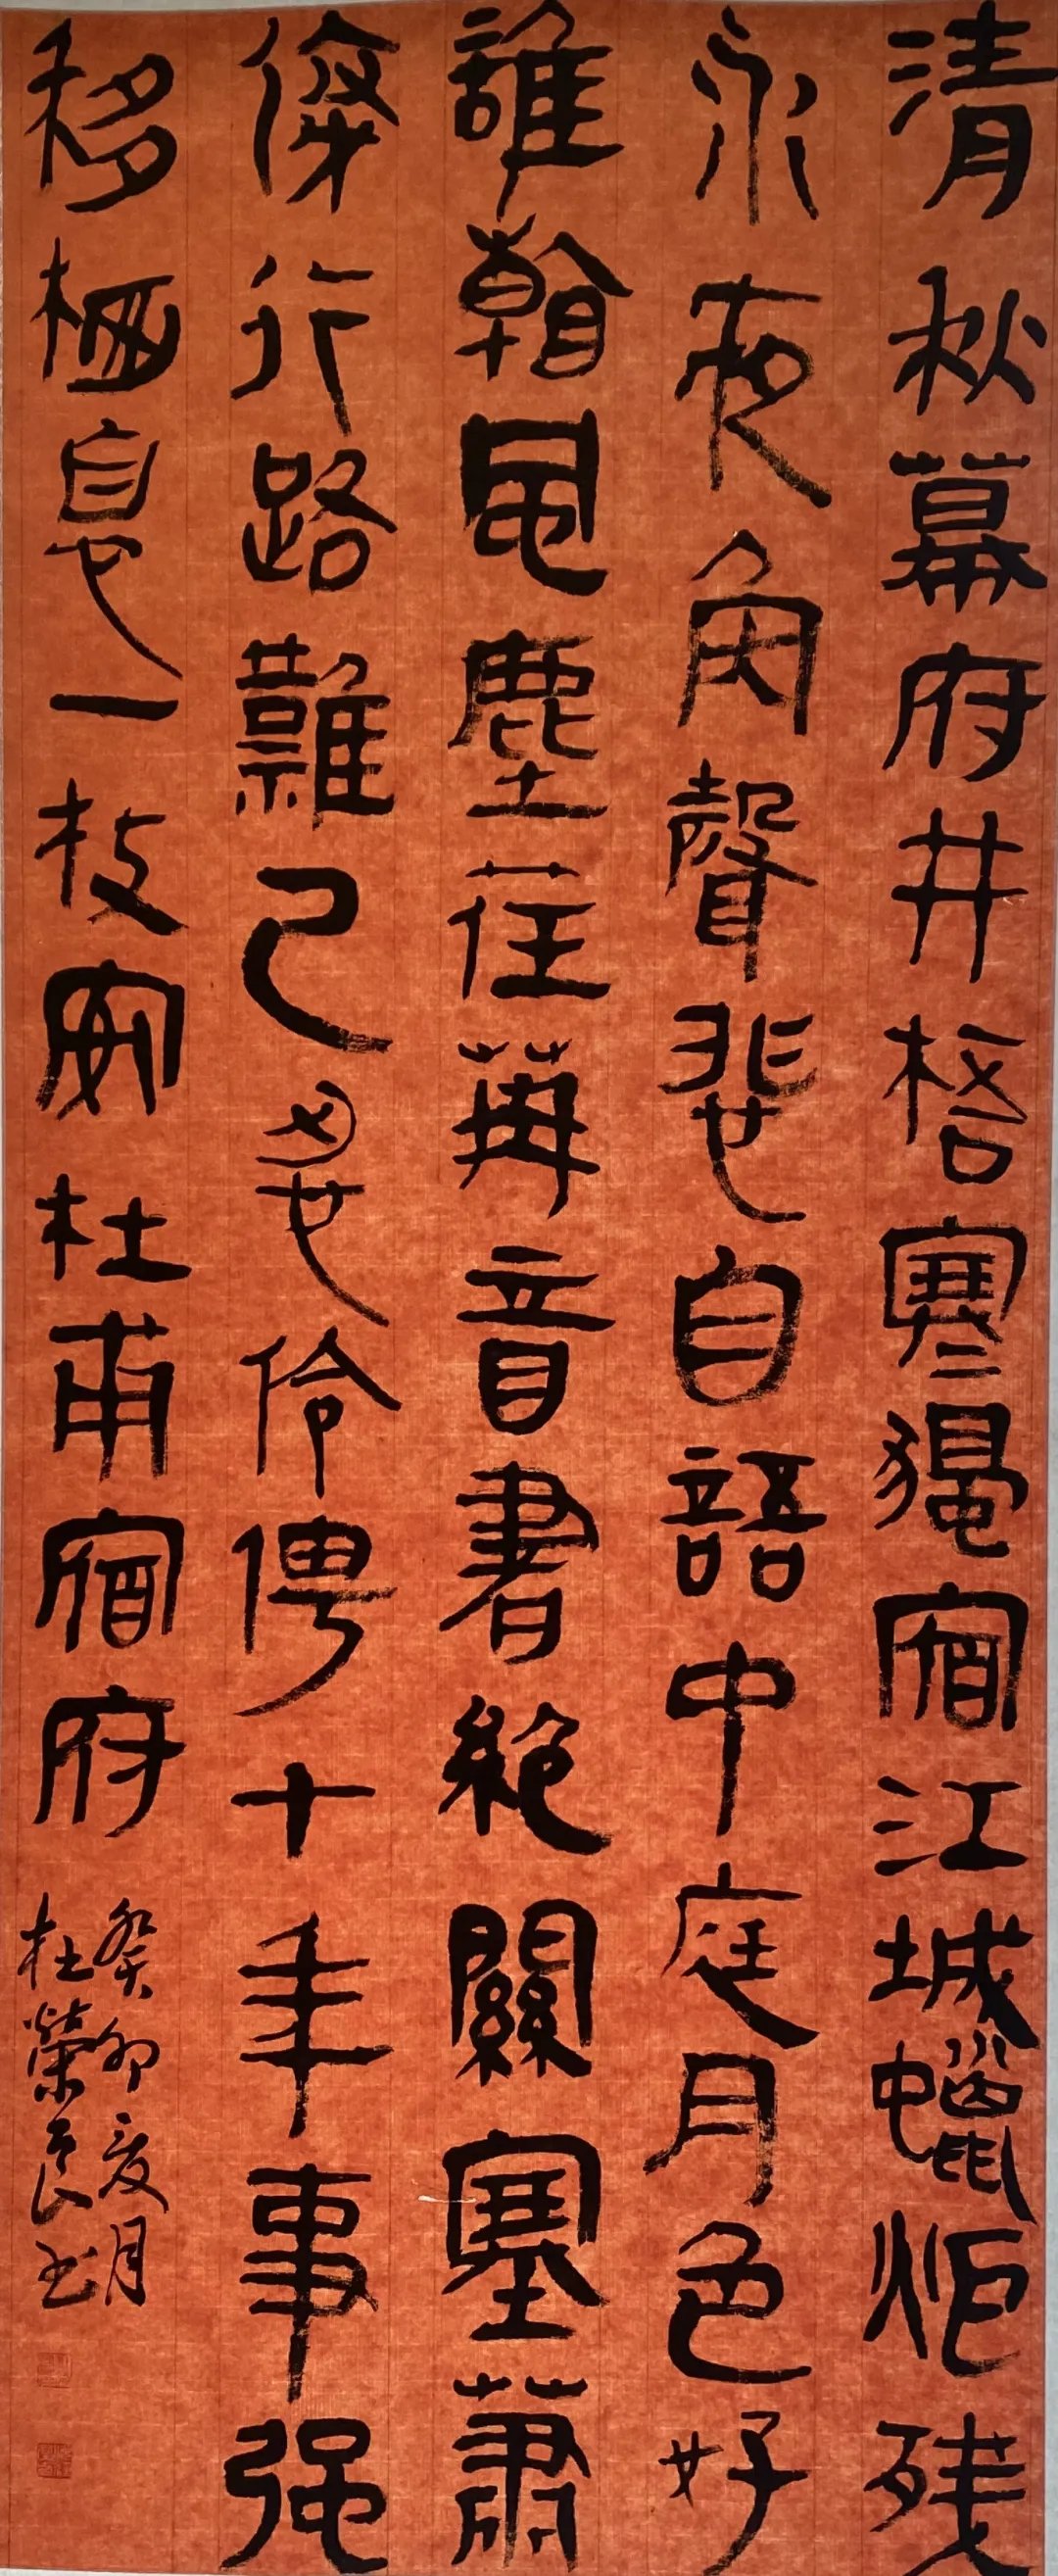 清秋幕府井梧寒獨宿江城蠟炬残
永夜角聲悲自語中庭月色好
誰看風塵荏苒音書絕關塞蕭
條行路難已忍伶俜十年事强
移栖息一枝安杜甫宿府
癸卯夏月
杜榮良书